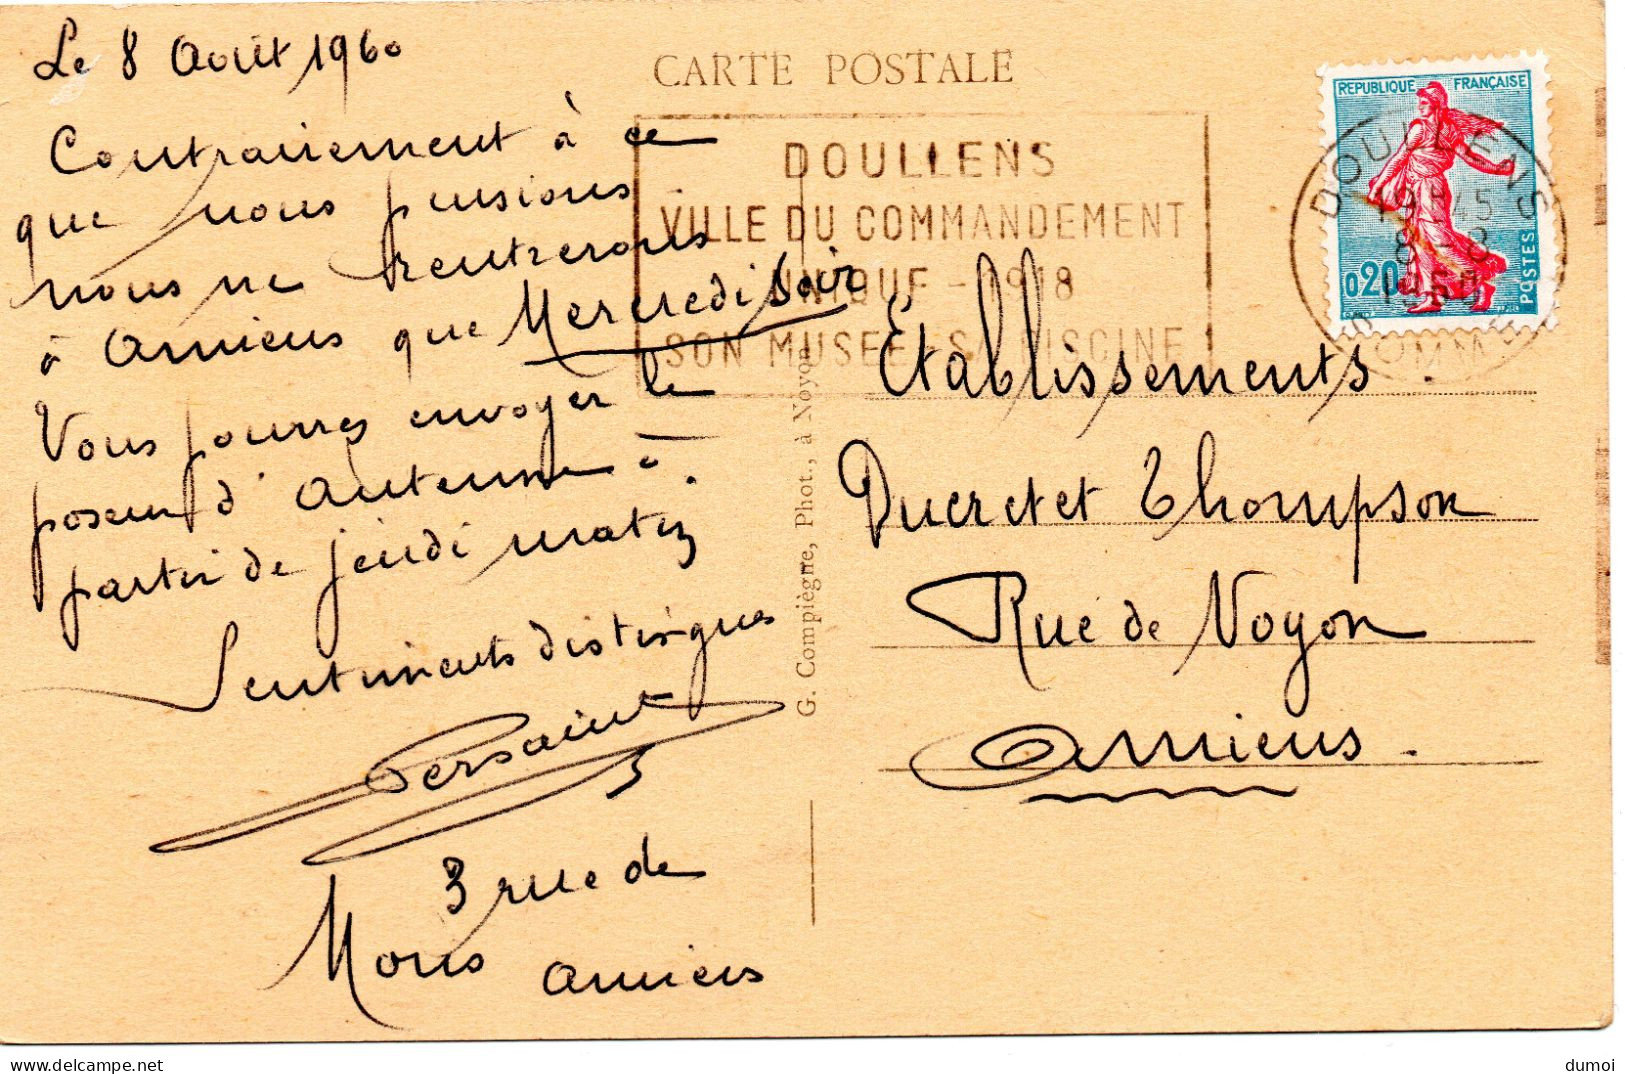 Le 8 Août 1960
Contrairement à ce
que nous pensions
nous ne rentrerons
à Amiens que Mercredi soir
Vous pourrez envoyer le
poseur d'antenne à
partir de jeudi matin
Sentiments distingués
Persaint
3 rue de
Mons Amiens
CARTE POSTALE
DOULLENS
VILLE DU COMMANDEMENT
UNIQUE - 1918
SON MUSEE - SA PISCINE
REPUBLIQUE FRANÇAISE
0,20
POSTES
DOULLENS
19H45
8-8
1960
SOMME
G. Compiègne, Phot., à Noyon
Etablissements
Ducretet Thompson
Rue de Noyon
Amiens.
dumoi